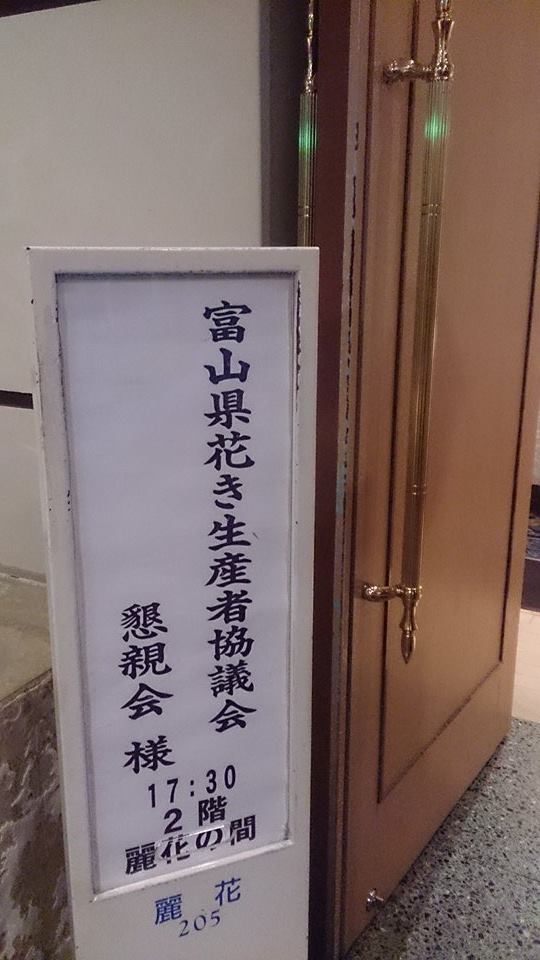 富山県花き生産者協議会
懇親会 様
17:30
2階
麗花の間
麗花
205